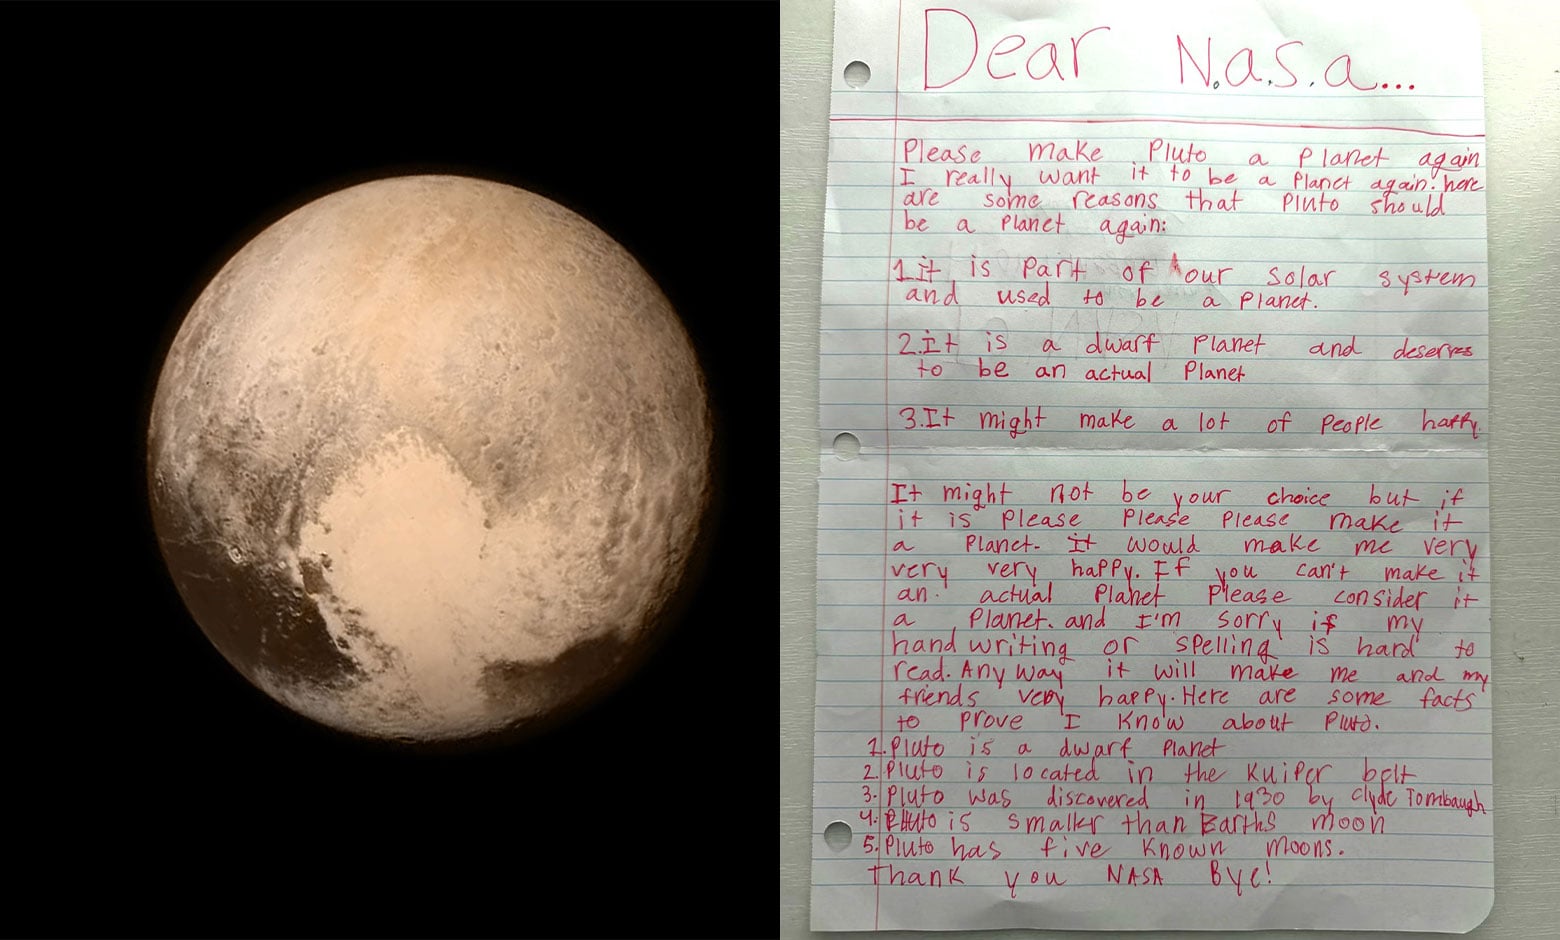 Dear N.a.s.a...
Please make Pluto a Planet again
I really want it to be a Planet again. here
are some reasons that Pluto should
be a Planet again:
1. it is part of our solar system
and used to be a Planet.
2. It is a dwarf Planet and deserves
to be an actual Planet
3. It might make a lot of people happy.
It might not be your choice but if
it is please Please Please make it
a Planet. it would make me very
very very happy. If you can't make it
an actual Planet Please consider it
a Planet. and I'm sorry if my
hand writing or spelling is hard to
read. Any way it will make me and my
friends very happy. Here are some facts
to prove I Know about Pluto.
1. Pluto is a dwarf Planet
2. Pluto is located in the Kuiper belt
3. Pluto was discovered in 1930 by Clyde Tombaugh
4. Pluto is smaller than Earths moon
5. Pluto has five Known moons.
Thank you NASA Bye!